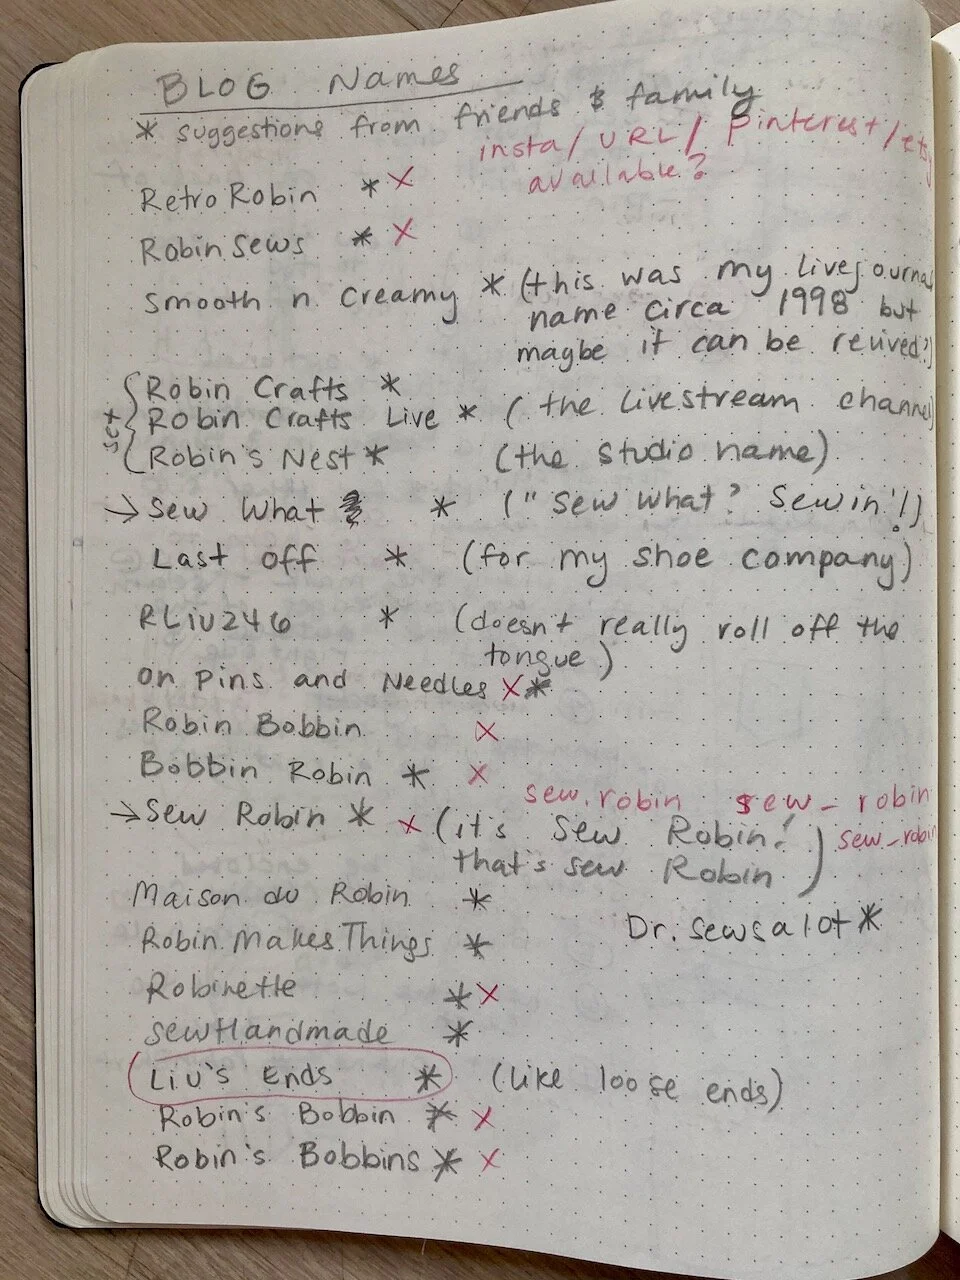 BLOG Names
* suggestions from friends & family
insta/URL/Pinterest/etsy
available?
Retro Robin * X
Robin Sews * X
Smooth n Creamy * (this was my livejournal
name circa 1998 but
maybe it can be revived?)
set { Robin Crafts *
Robin Crafts Live * (the livestream channel)
Robin's Nest * (the studio name)
→ Sew What * ("Sew what? Sew in!!)
Last off * (for my shoe company)
RLiu246 * (doesn't really roll off the
tongue)
on Pins and Needles X *
Robin Bobbin X
Bobbin Robin * X
sew.robin sew_robin
→ Sew Robin * X (it's Sew Robin! sew_robin
that's sew Robin)
Maison du Robin *
Dr. sewsalot *
Robin Makes Things *
Robinette * X
sewHandmade *
Liu's Ends * (like loose ends)
Robin's Bobbin * X
Robin's Bobbins * X